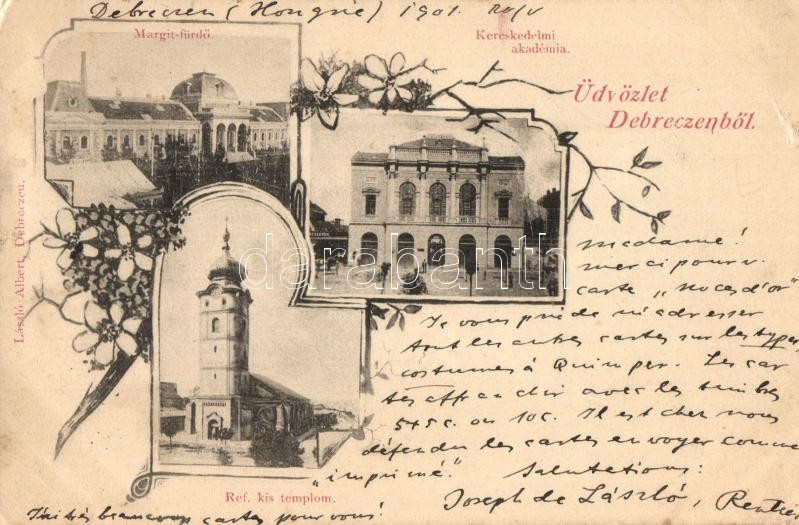 Debreczen (Hongrie) 1901.
Margit-fürdő.
Kereskedelmi
akadémia.
Üdvözlet
Debreczenből.
László Albert, Debreczen.
darabanth.com
madame!
merci pour v.
carte „noces d'or"
Je vous prie de m'adresser
tout les autres cartes sur les types,
costumes à Quimper. Les car
tes affranchir avec les timbres
5+5 c. ou 10 c. Il est chez vous
défendu les cartes envoyer comme
„imprimé". Salutations:
Joseph de László, Rentier
Ref. kis templom.
J'ai très beaucoup cartes pour vous!